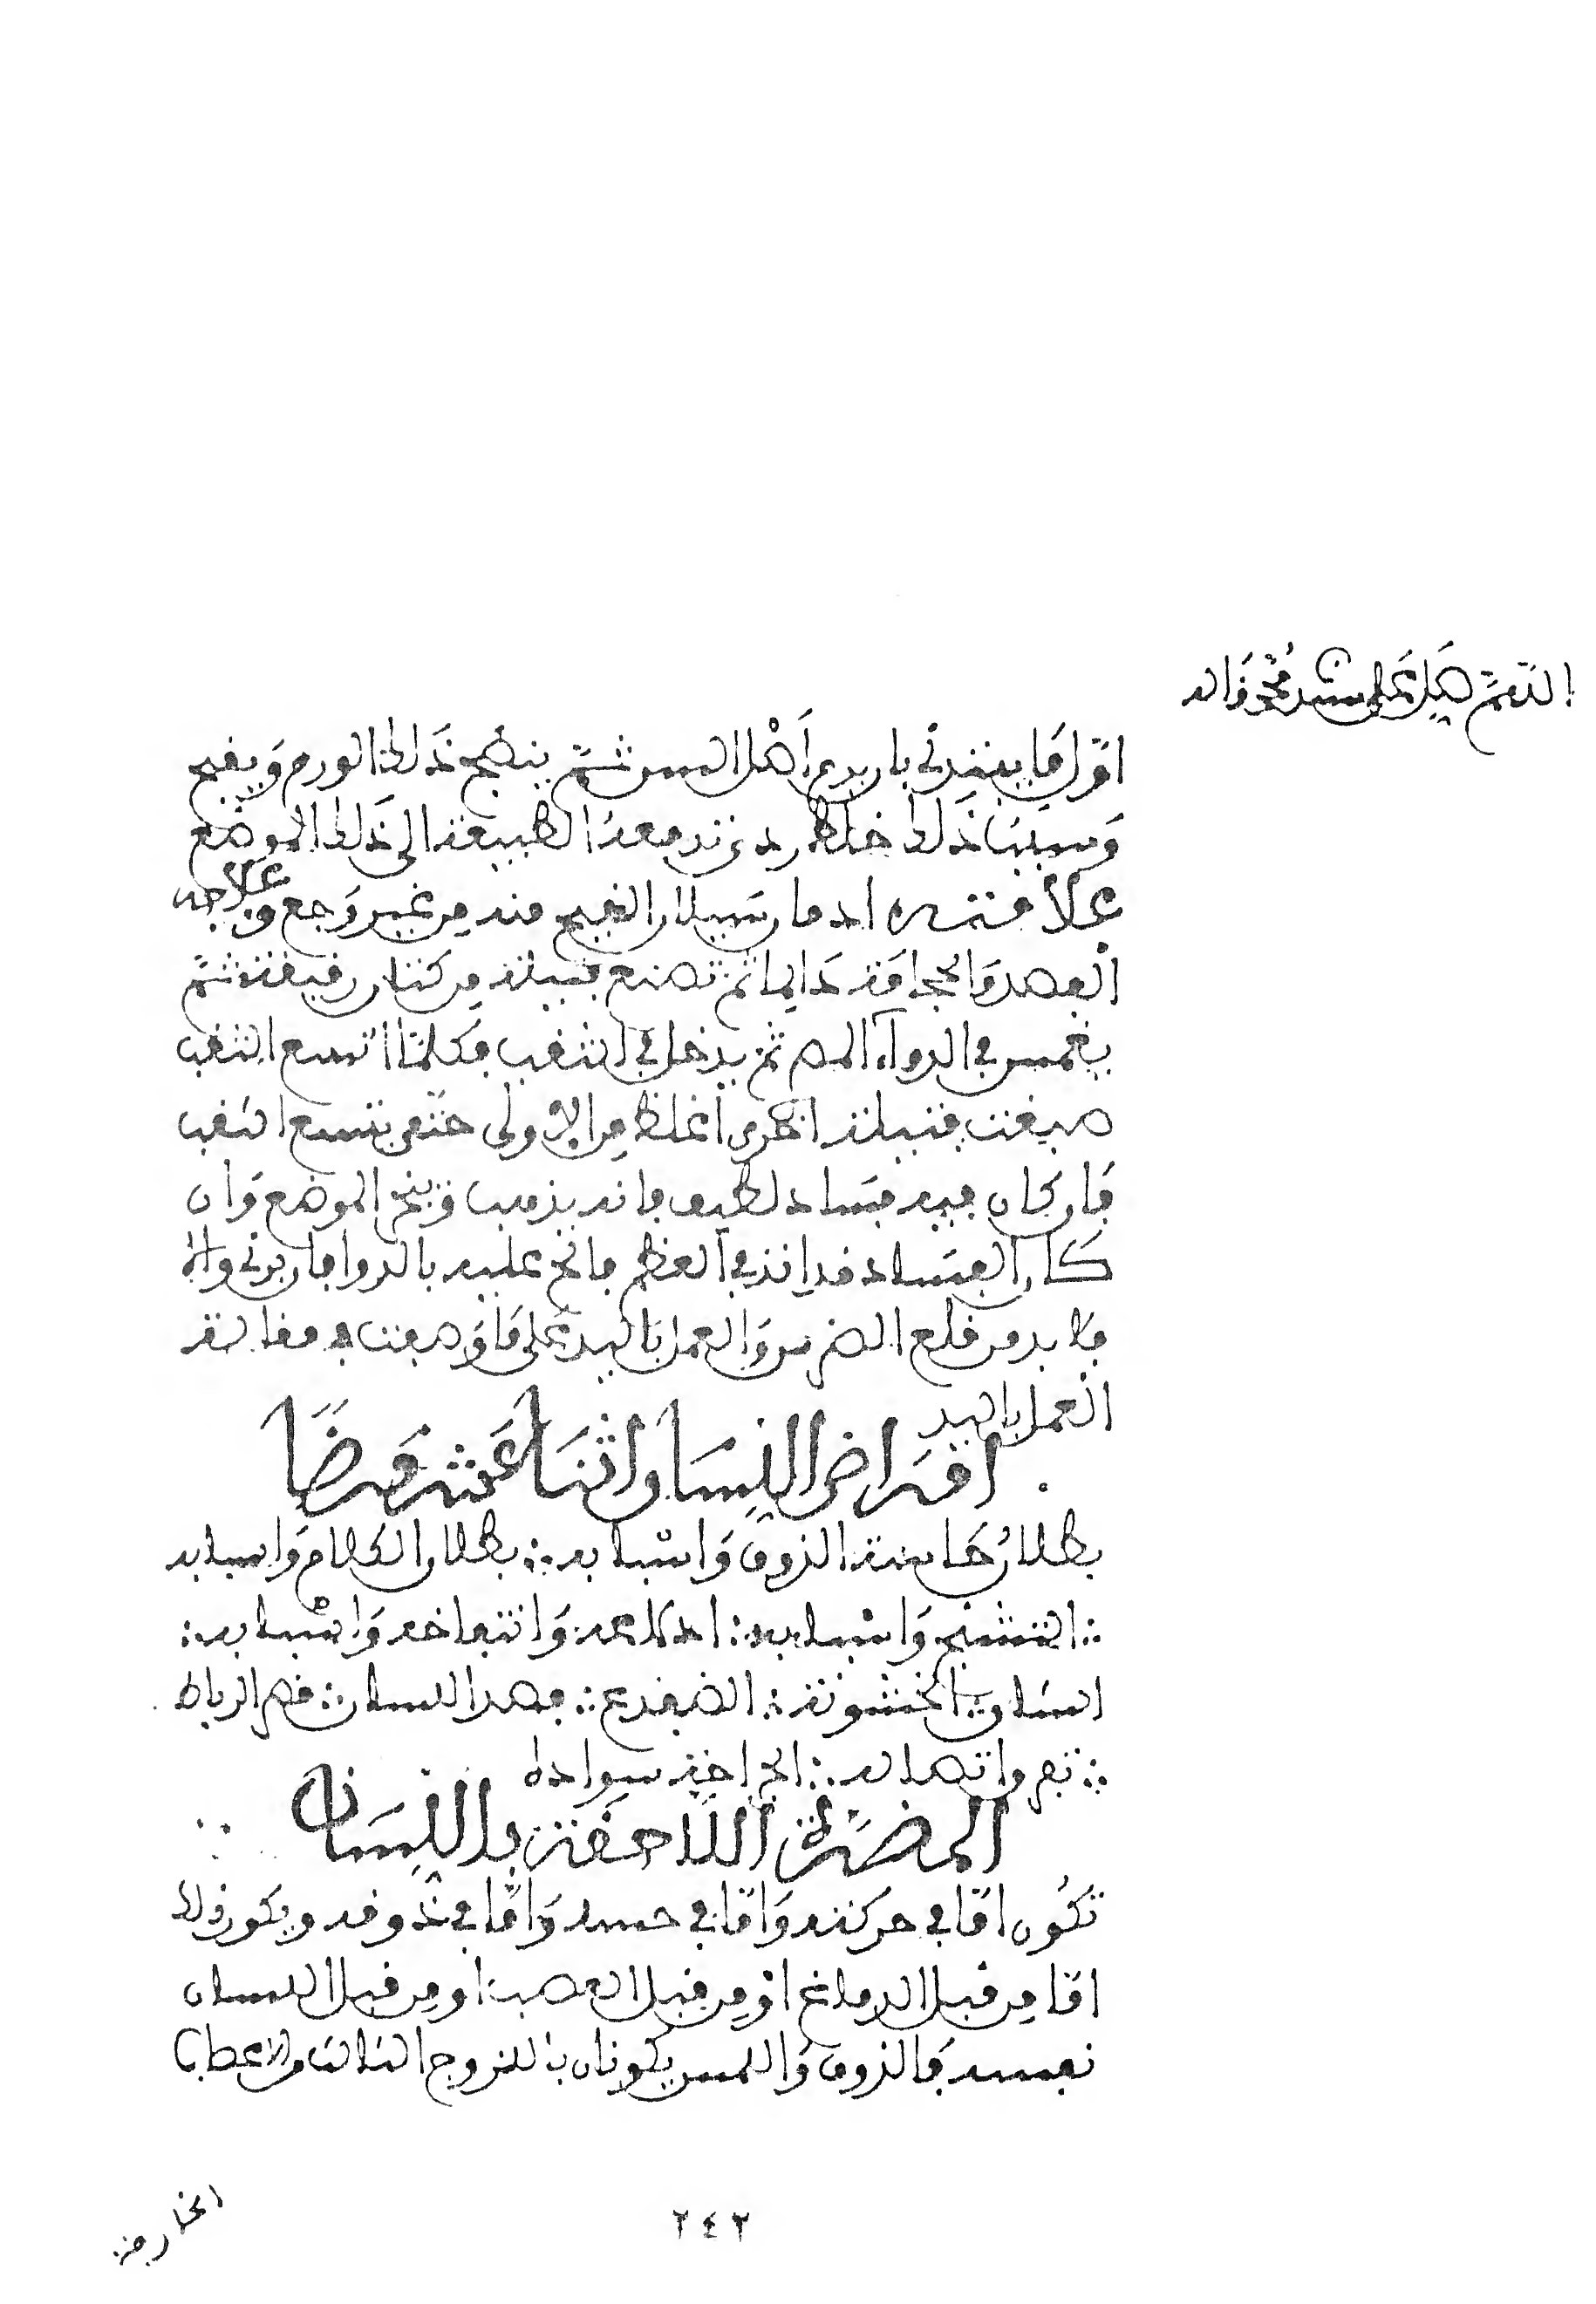 اللهم صل على سيدنا محمد واله
اول ما يبتدئ باربيع اصل السن ثم ينضج ذلك الورم ويفيح
وسبب ذلك خلط ردي تدفعه الطبيعة الى ذلك الموضع
علامته ادمان سيلان القيح منه من غير وجع وعلاجه
الفصد والحجامة دايما ثم تصنع فتيلة من كتان رقيقة ثم
يغمس في الدواء المر ثم يدخل في الثقب فكلما اتسع الثقب
صيغت فتيلة اخرى اغلظ من الاولى حتى يتسع الثقب
فان كان فيه فساد لطيف فانه يذهب وينجر الموضع وان
كان الفساد قد اخذ في العظم فالح عليه بالدوا فان برئ والا
فلا بد من قلع الضرس والعمل باليد على ما وصفت في مقالة
العمل باليد
امراض اللسان اثنا عشر مرضا
بطلان حاسة الذوق واسبابه بطلان الكلام واسبابه
التشنج واسبابه اندلاعه وانتفاخه واسبابه
الخشونة الضفدع فصر اللسان قصر الرباط
سواده
المضرة اللاحقة باللسان
تكون اما في حركته واما في حسه واما في ذوقه ويكون ذلك
اما من قبل الدماغ او من قبل العصب او من قبل اللسان
نفسه فالذوق واللمس يكونان بالزوج الثالث من الاعصاب
الخارجة
٢٤٢